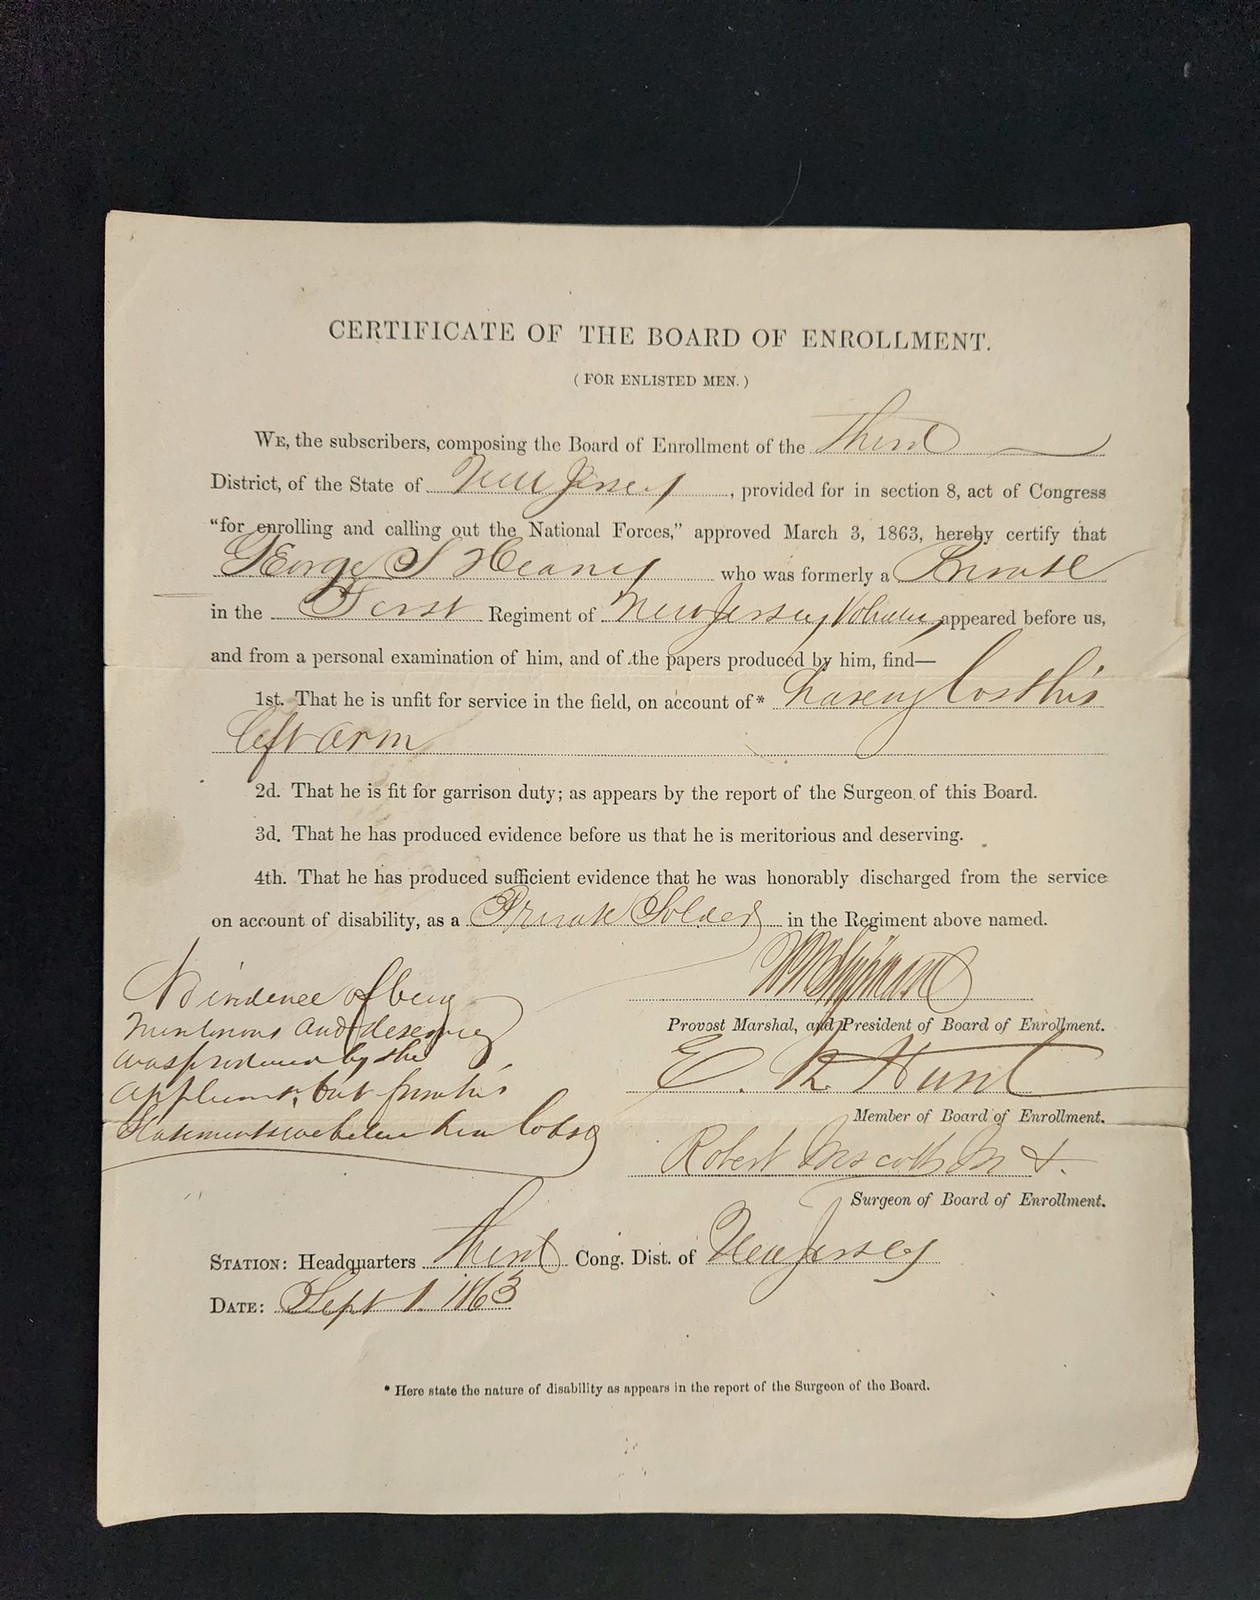 CERTIFICATE OF THE BOARD OF ENROLLMENT.
( FOR ENLISTED MEN. )
WE, the subscribers, composing the Board of Enrollment of the Third
District, of the State of New Jersey, provided for in section 8, act of Congress
"for enrolling and calling out the National Forces," approved March 3, 1863, hereby certify that
George S Heaney who was formerly a Private
in the First Regiment of New Jersey appeared before us,
and from a personal examination of him, and of the papers produced by him, find—
1st. That he is unfit for service in the field, on account of* haveing lost his
left arm
2d. That he is fit for garrison duty; as appears by the report of the Surgeon of this Board.
3d. That he has produced evidence before us that he is meritorious and deserving.
4th. That he has produced sufficient evidence that he was honorably discharged from the service
on account of disability, as a Private Solder in the Regiment above named.
Provost Marshal, and President of Board of Enrollment.
E. R Hunt
Member of Board of Enrollment.
Robert
Surgeon of Board of Enrollment.
evidence of being
and deserving
was produced by the
applicant, but from his
Statements we believe him to be so
STATION: Headquarters Third Cong. Dist. of New Jersey
DATE: Sept 1 1863
* Here state the nature of disability as appears in the report of the Surgeon of the Board.